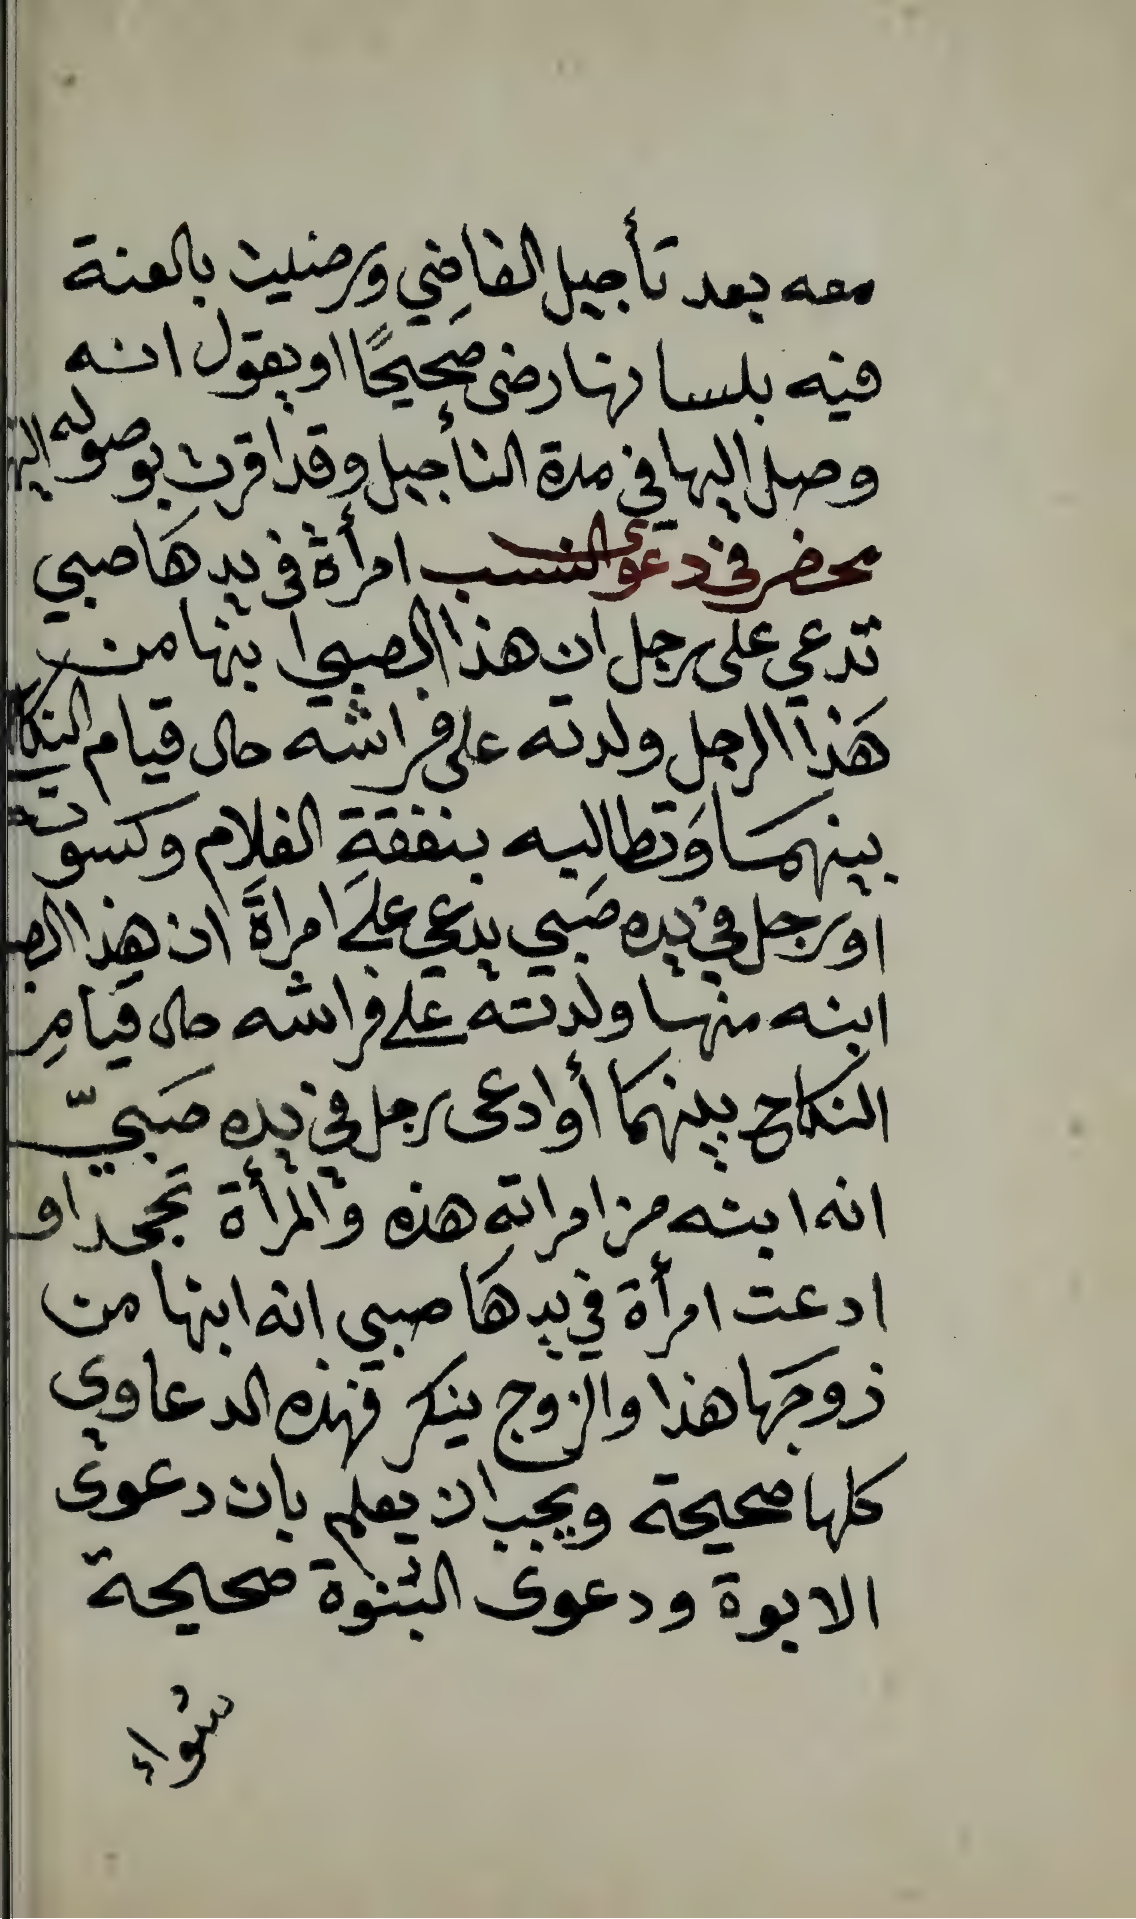 معه بعد تأجيل القاضي ورضيت بالعنة
فيه بلسانها رضى صحيحًا او يقول انه
وصل اليها في مدة التأجيل وقد اقرت بوصوله اليها
محضر في دعوى النسب امرأة في يدها صبي
تدعي على رجل ان هذا الصبي ابنها من
هذا الرجل ولدته على فراشه حال قيام النكاح
بينهما وتطالبه بنفقة الغلام وكسوته
او رجل في يده صبي يدعي على امراة ان هذا الصبي
ابنه منها ولدته على فراشه حال قيام
النكاح بينهما أو ادعى رجل في يده صبيّ
انه ابنه من امراته هذه والمرأة تجحد او
ادعت امرأة في يدها صبي انه ابنها من
زوجها هذا والزوج ينكر فهذه الدعاوي
كلها صحيحة ويجب ان يعلم بان دعوى
الابوة ودعوى البنوة صحيحة
سواء